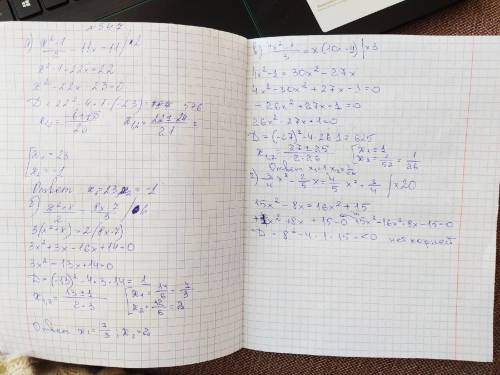 № 347
а) x²-1/2 - 11x = 11 | ·2
x² - 1 - 22x = 22
x² - 22x - 23 = 0
D = 22² - 4 · 1 · (-23) = 576
x₁,₂ = 22 ± 24 / 2·1 =
[x₁ = 23
[x₂ = -1
Ответ x₁ = 23 x₂ = -1
б) x²+x/2 = 8x-7/3 | · 6
3(x²+x) = 2(8x-7)
3x² + 3x - 16x + 14 = 0
3x² - 13x + 14 = 0
D = (-13)² - 4 · 3 · 14 = 1
x₁,₂ = 13 ± 1 / 2·3 [x₁ = 14/6 = 7/3
[x₂ = 12/6 = 2
Ответ x₁ = 7/3, x₂ = 2
в) 4x²-1/3 = x(10x-9) | ×3
4x² - 1 = 30x² - 27x
4x² - 30x² + 27x - 1 = 0
-26x² + 27x - 1 = 0
26x² - 27x + 1 = 0
D = (-27)² - 4 · 26 · 1 = 625
x₁,₂ = 27 ± 25 / 2·26 [x₁ = 1
[x₂ = 2/52 = 1/26
Ответ x₁ = 1 x₂ = 1/26
г) 3/4 x² - 2/5 x = 4/5 x² + 3/4 | ×20
15x² - 8x = 16x² + 15
15x² - 16x² - 8x - 15 = 0
x² + 8x + 15 = 0
D = 8² - 4 · 1 · 15 = <0 нет корней